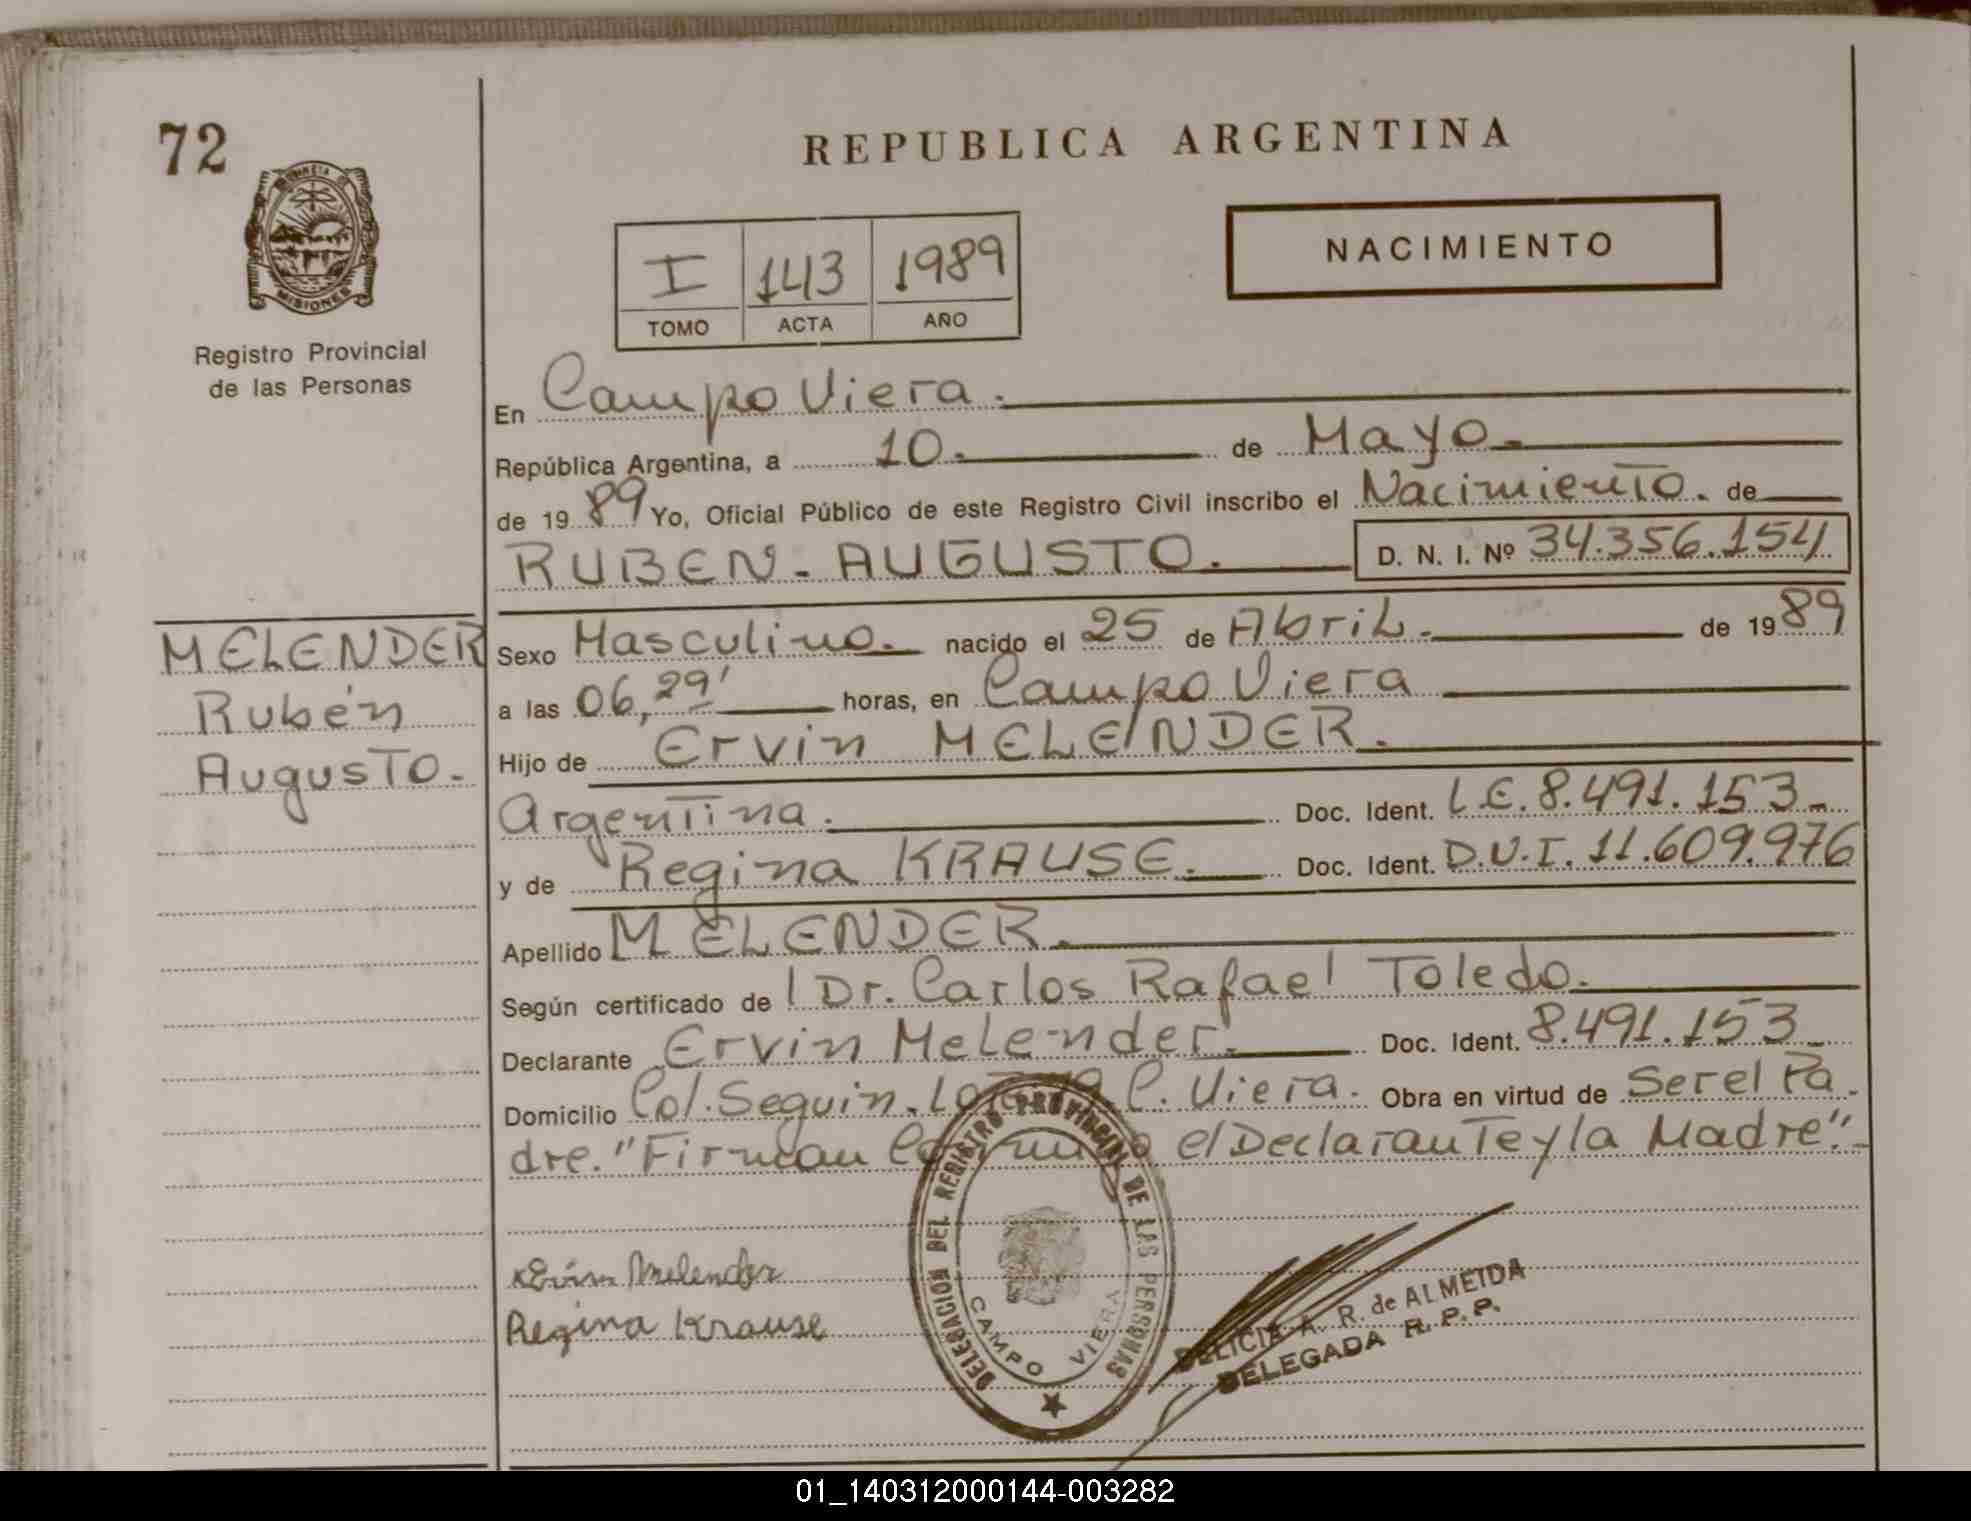 72
REPUBLICA ARGENTINA
MISIONES
Registro Provincial
de las Personas
I 143 1989
TOMO ACTA AÑO
NACIMIENTO
En Campo Viera.
República Argentina, a 10. de Mayo.
de 1989 Yo, Oficial Público de este Registro Civil inscribo el Nacimiento. de
RUBEN-AUGUSTO. D. N. I. Nº 34.356.154
MELENDER
Rubén
Augusto.
Sexo Masculino. nacido el 25 de Abril. de 1989
a las 06,29' horas, en Campo Viera
Hijo de Ervin MELENDER.
Argentina. Doc. Ident. L.E. 8.491.153
y de Regina KRAUSE. Doc. Ident. D.N.I. 11.609.976
Apellido MELENDER.
Según certificado de Dr. Carlos Rafael Toledo.
Declarante Ervin Melender. Doc. Ident. 8.491.153
Domicilio Col. Seguin. C. Viera. Obra en virtud de Ser el Pa
dre. "Firman el Declarante y la Madre".
Ervin Melender
Regina Krause
DELEGACION DEL REGISTRO PROVINCIAL DE LAS PERSONAS
CAMPO VIERA
DELICIA A. R. de ALMEIDA
DELEGADA R. P. P.
01_140312000144-003282